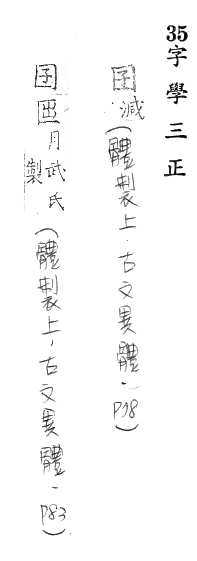 35字學三正
囝減(體製上.古文異體.P78)
囝月武氏製(體製上,古文異體.P83)